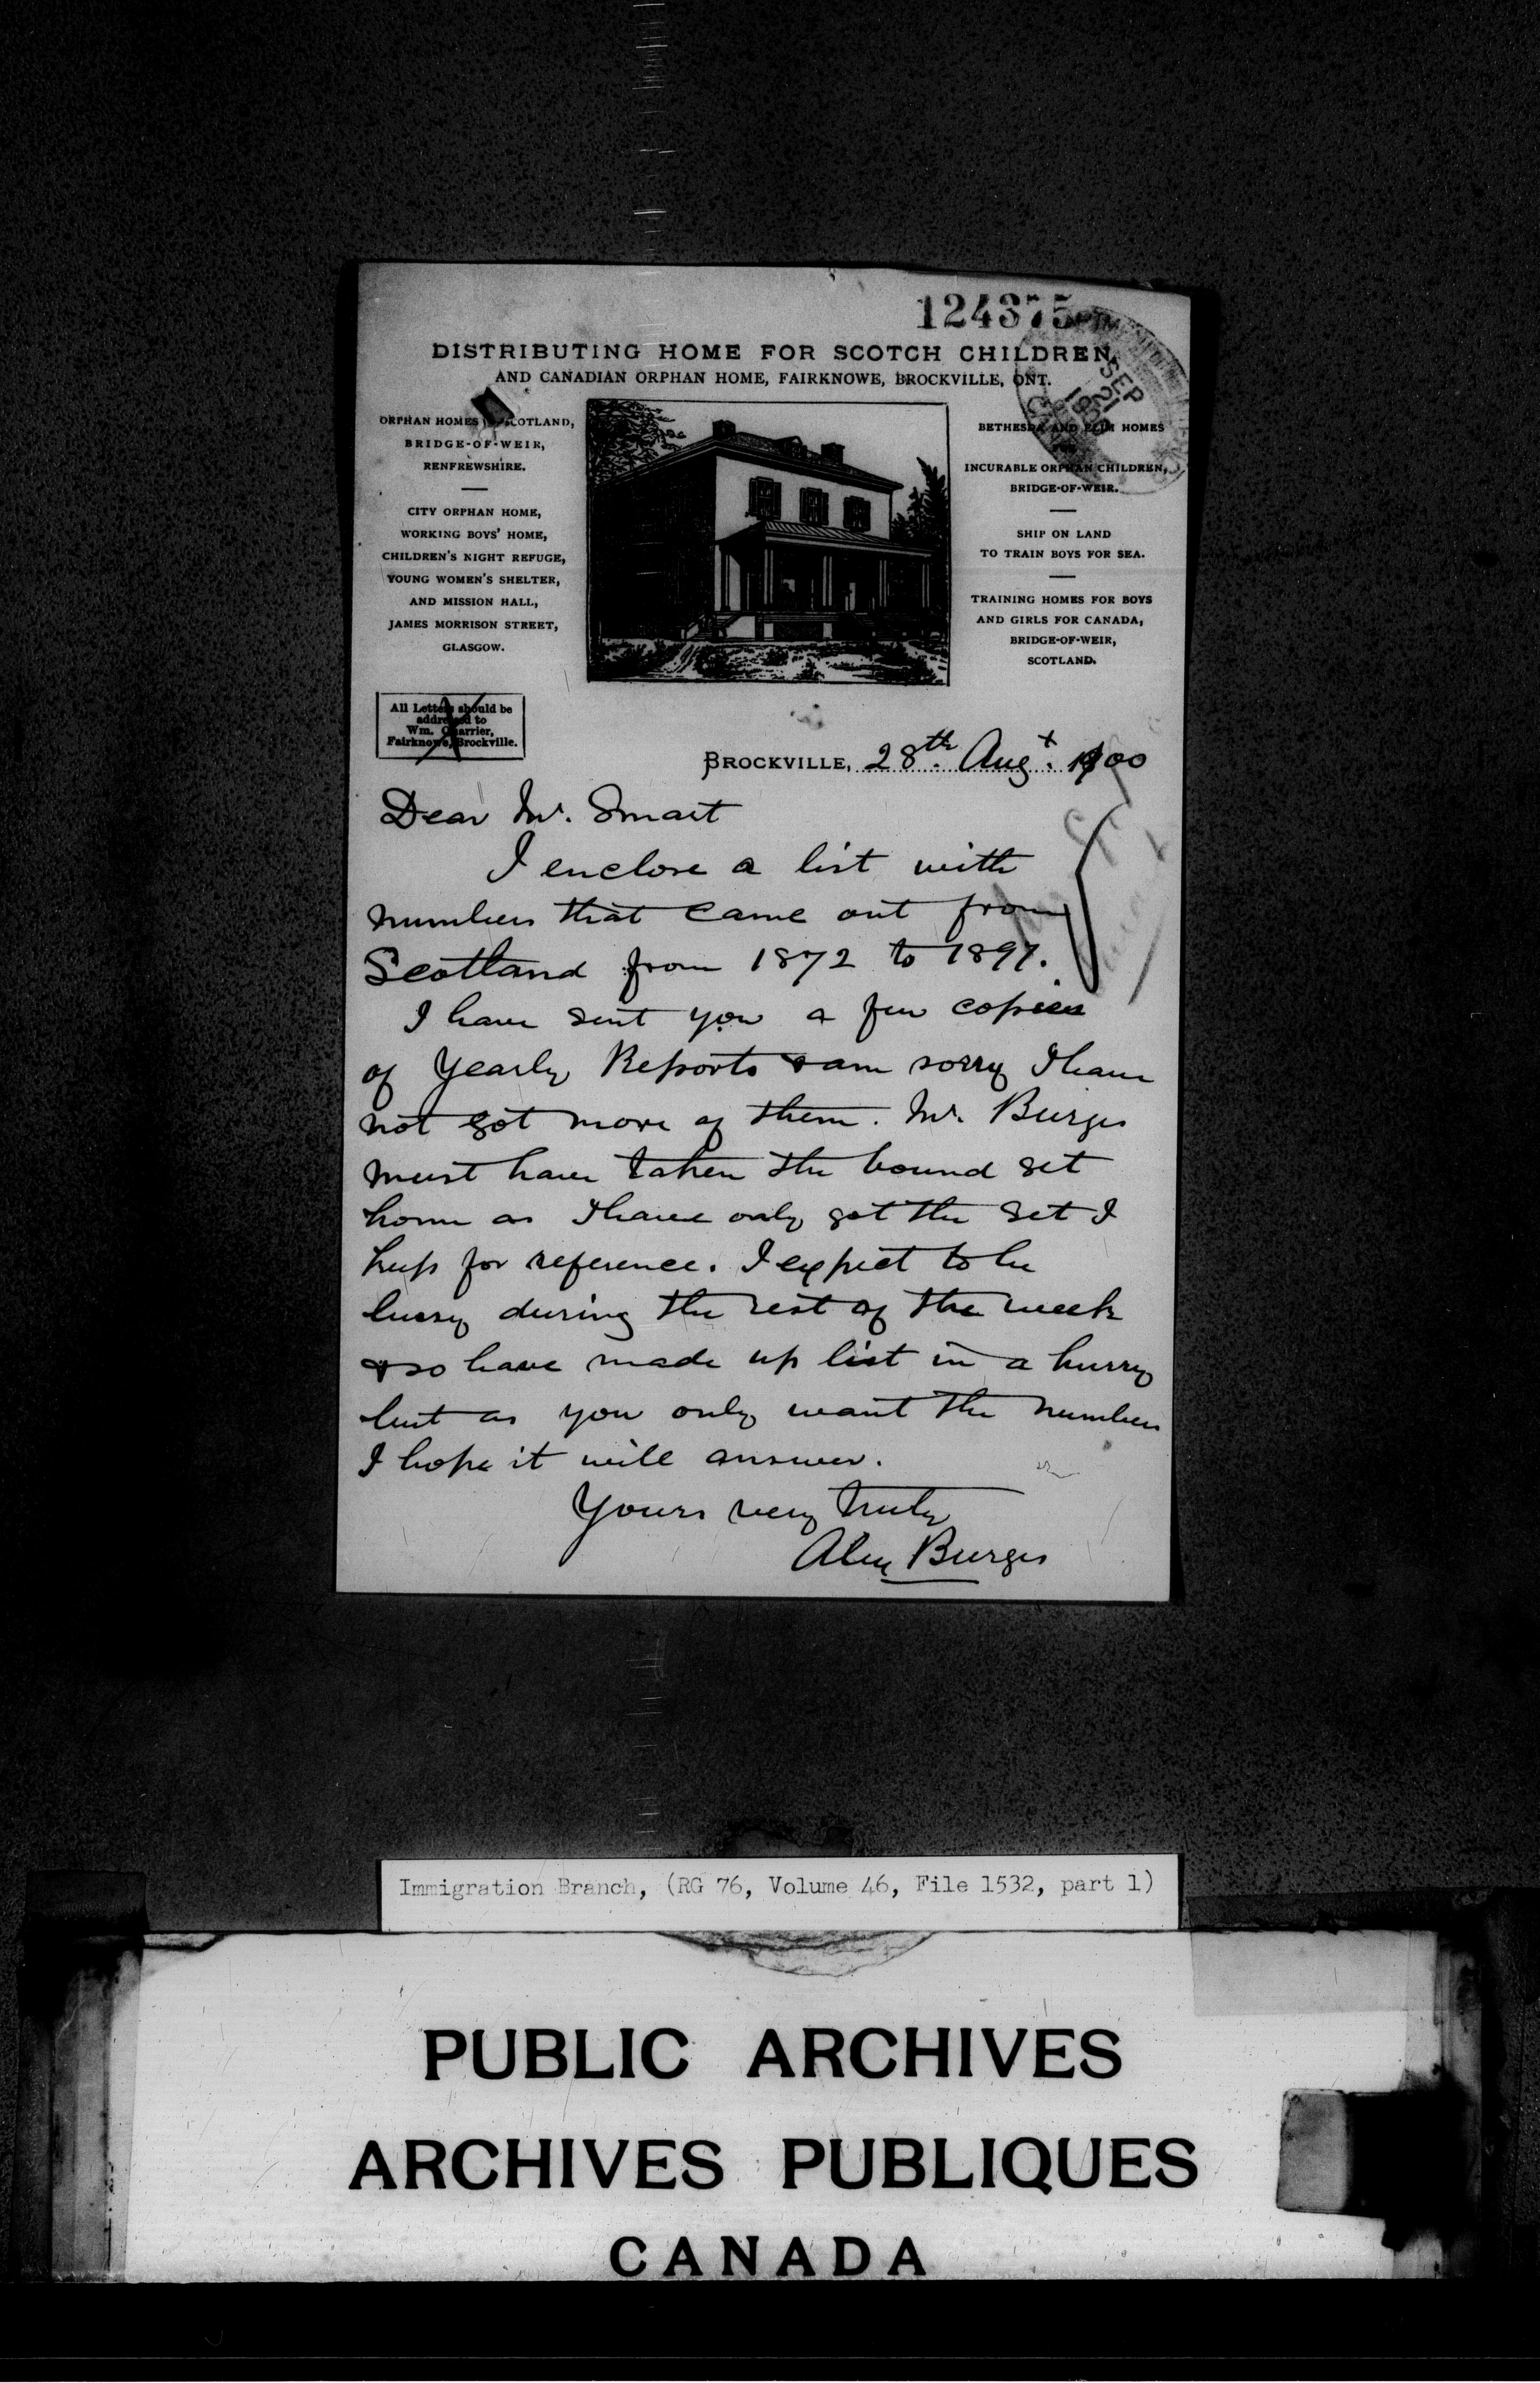 124375
DISTRIBUTING HOME FOR SCOTCH CHILDREN,
AND CANADIAN ORPHAN HOME, FAIRKNOWE, BROCKVILLE, ONT.
SEP
21
ORPHAN HOMES SCOTLAND,
BRIDGE-OF-WEIR,
RENFREWSHIRE.
CITY ORPHAN HOME,
WORKING BOYS' HOME,
CHILDREN'S NIGHT REFUGE,
YOUNG WOMEN'S SHELTER,
AND MISSION HALL,
JAMES MORRISON STREET,
GLASGOW.
BETHESDA AND ELIM HOMES
INCURABLE ORPHAN CHILDREN,
BRIDGE-OF-WEIR.
SHIP ON LAND
TO TRAIN BOYS FOR SEA.
TRAINING HOMES FOR BOYS
AND GIRLS FOR CANADA,
BRIDGE-OF-WEIR,
SCOTLAND.
All Letters should be
addressed to
Wm. Quarrier,
Fairknowe, Brockville.
BROCKVILLE, 28th. Augt. 1900
Dear Mr. Smart
I enclose a list with
numbers that came out from
Scotland from 1872 to 1897.
I have sent you a few copies
of Yearly Reports & am sorry I have
not got more of them. Mr. Burges
must have taken the bound set
home as I have only got the set I
keep for reference. I expect to be
busy during the rest of the week
& so have made up list in a hurry
but as you only want the numbers
I hope it will answer.
Yours very truly
Alex Burges
Immigration Branch, (RG 76, Volume 46, File 1532, part 1)
PUBLIC ARCHIVES
ARCHIVES PUBLIQUES
CANADA